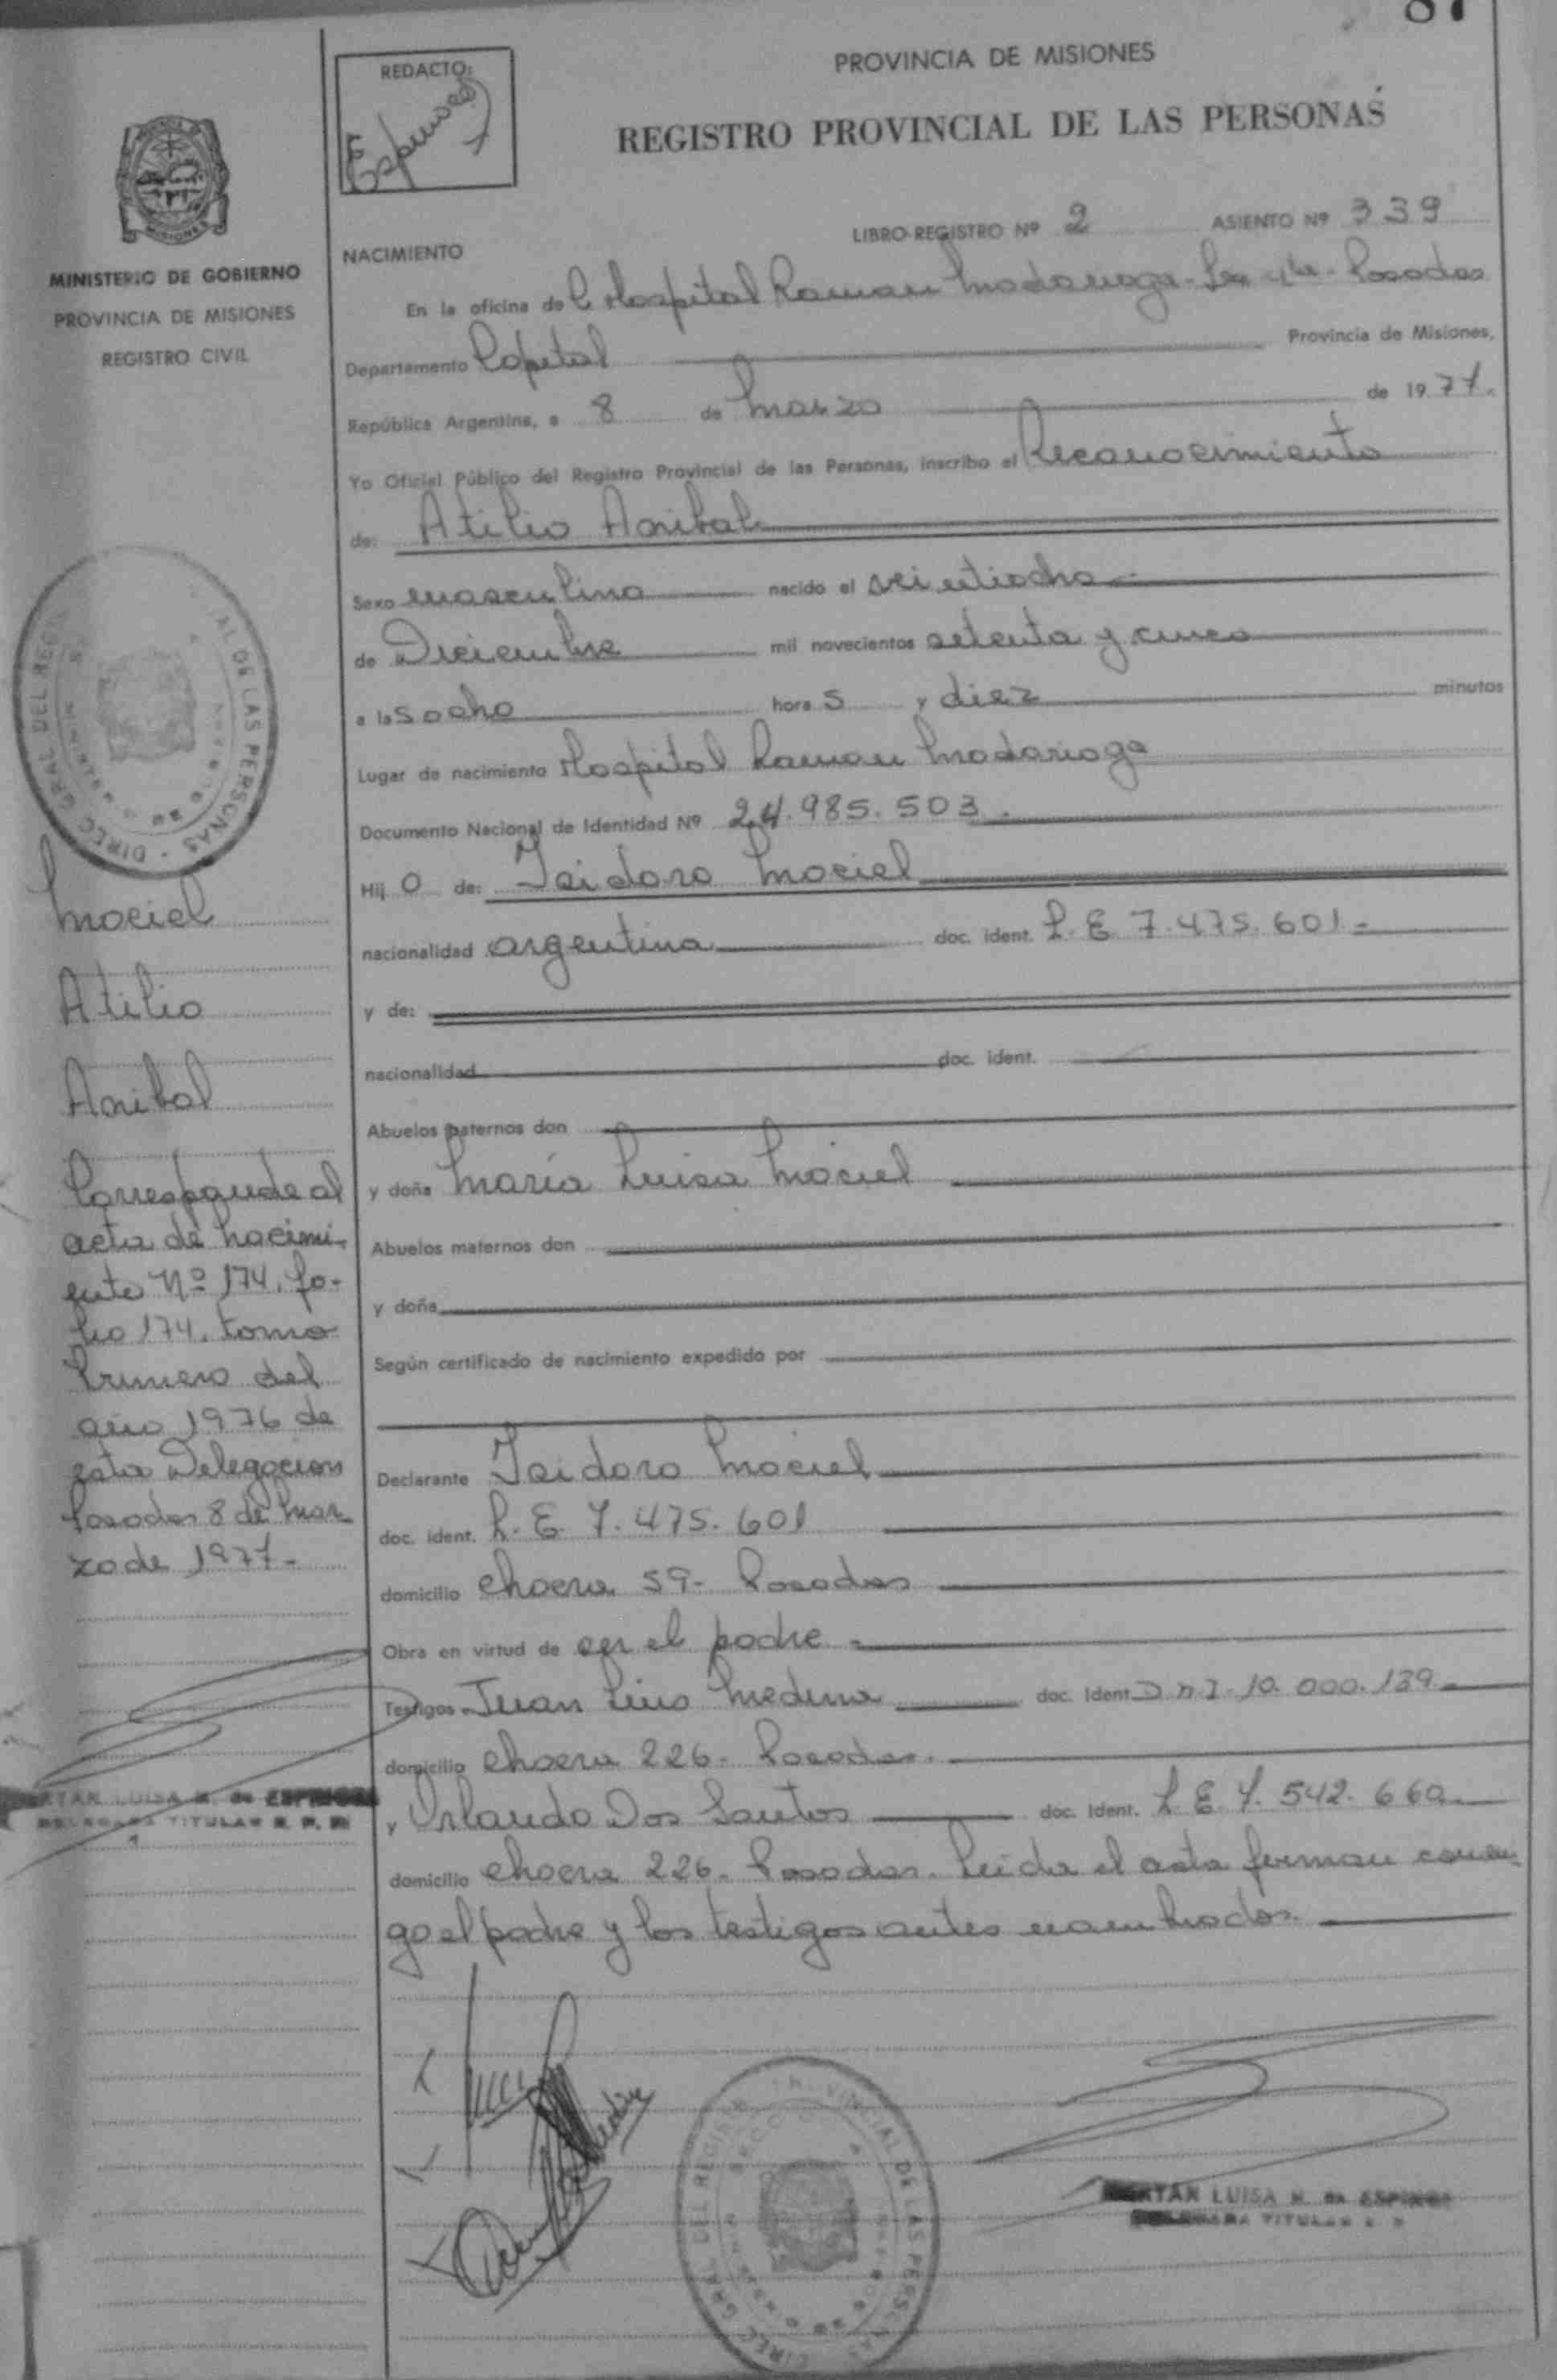 87
PROVINCIA DE MISIONES
REGISTRO PROVINCIAL DE LAS PERSONAS
REDACTO:
MISIONES
MINISTERIO DE GOBIERNO
PROVINCIA DE MISIONES
REGISTRO CIVIL
LIBRO-REGISTRO Nº 2 ASIENTO Nº 339
NACIMIENTO
En la oficina de Hospital Ramon Madariaga - Posadas
Departamento Capital Provincia de Misiones,
República Argentina, a 8 de Marzo de 1977.
Yo Oficial Público del Registro Provincial de las Personas, inscribo el Reconocimiento
de: Atilio Anibal
Sexo masculino nacido el veintiocho
de Diciembre mil novecientos setenta y cinco
a las ocho horas y diez minutos
Lugar de nacimiento Hospital Ramon Madariaga
Documento Nacional de Identidad Nº 24.985.503
Hijo de: Isidoro Maciel
nacionalidad argentina doc. ident. L. E 7.475.601-
y de:
nacionalidad doc. ident.
Abuelos paternos don
y doña María Luisa Maciel
Abuelos maternos don
y doña
Según certificado de nacimiento expedido por
Declarante Isidoro Maciel
doc. ident. L. E. 7.475.601
domicilio chacra 59- Posadas
Obra en virtud de ser el padre
Testigos Juan Medina doc. Ident. D N I - 10.000.139
domicilio chacra 226- Posadas.
y Orlando Dos Santos doc. Ident. L E 7.542.660
domicilio chacra 226- Posadas. Leida el acta firman conmi
go el padre y los testigos antes nombrados.
Maciel
Atilio
Anibal
Corresponde al
acta de nacimi-
ento Nº 174, fo-
lio 174, tomo
Primero del
año 1976 de
esta Delegacion
Posadas 8 de Mar-
zo de 1977-
LUISA M. de ESPINOSA
DELEGADA TITULAR R. P. P.
LUISA M. de ESPINOSA
DELEGADA TITULAR